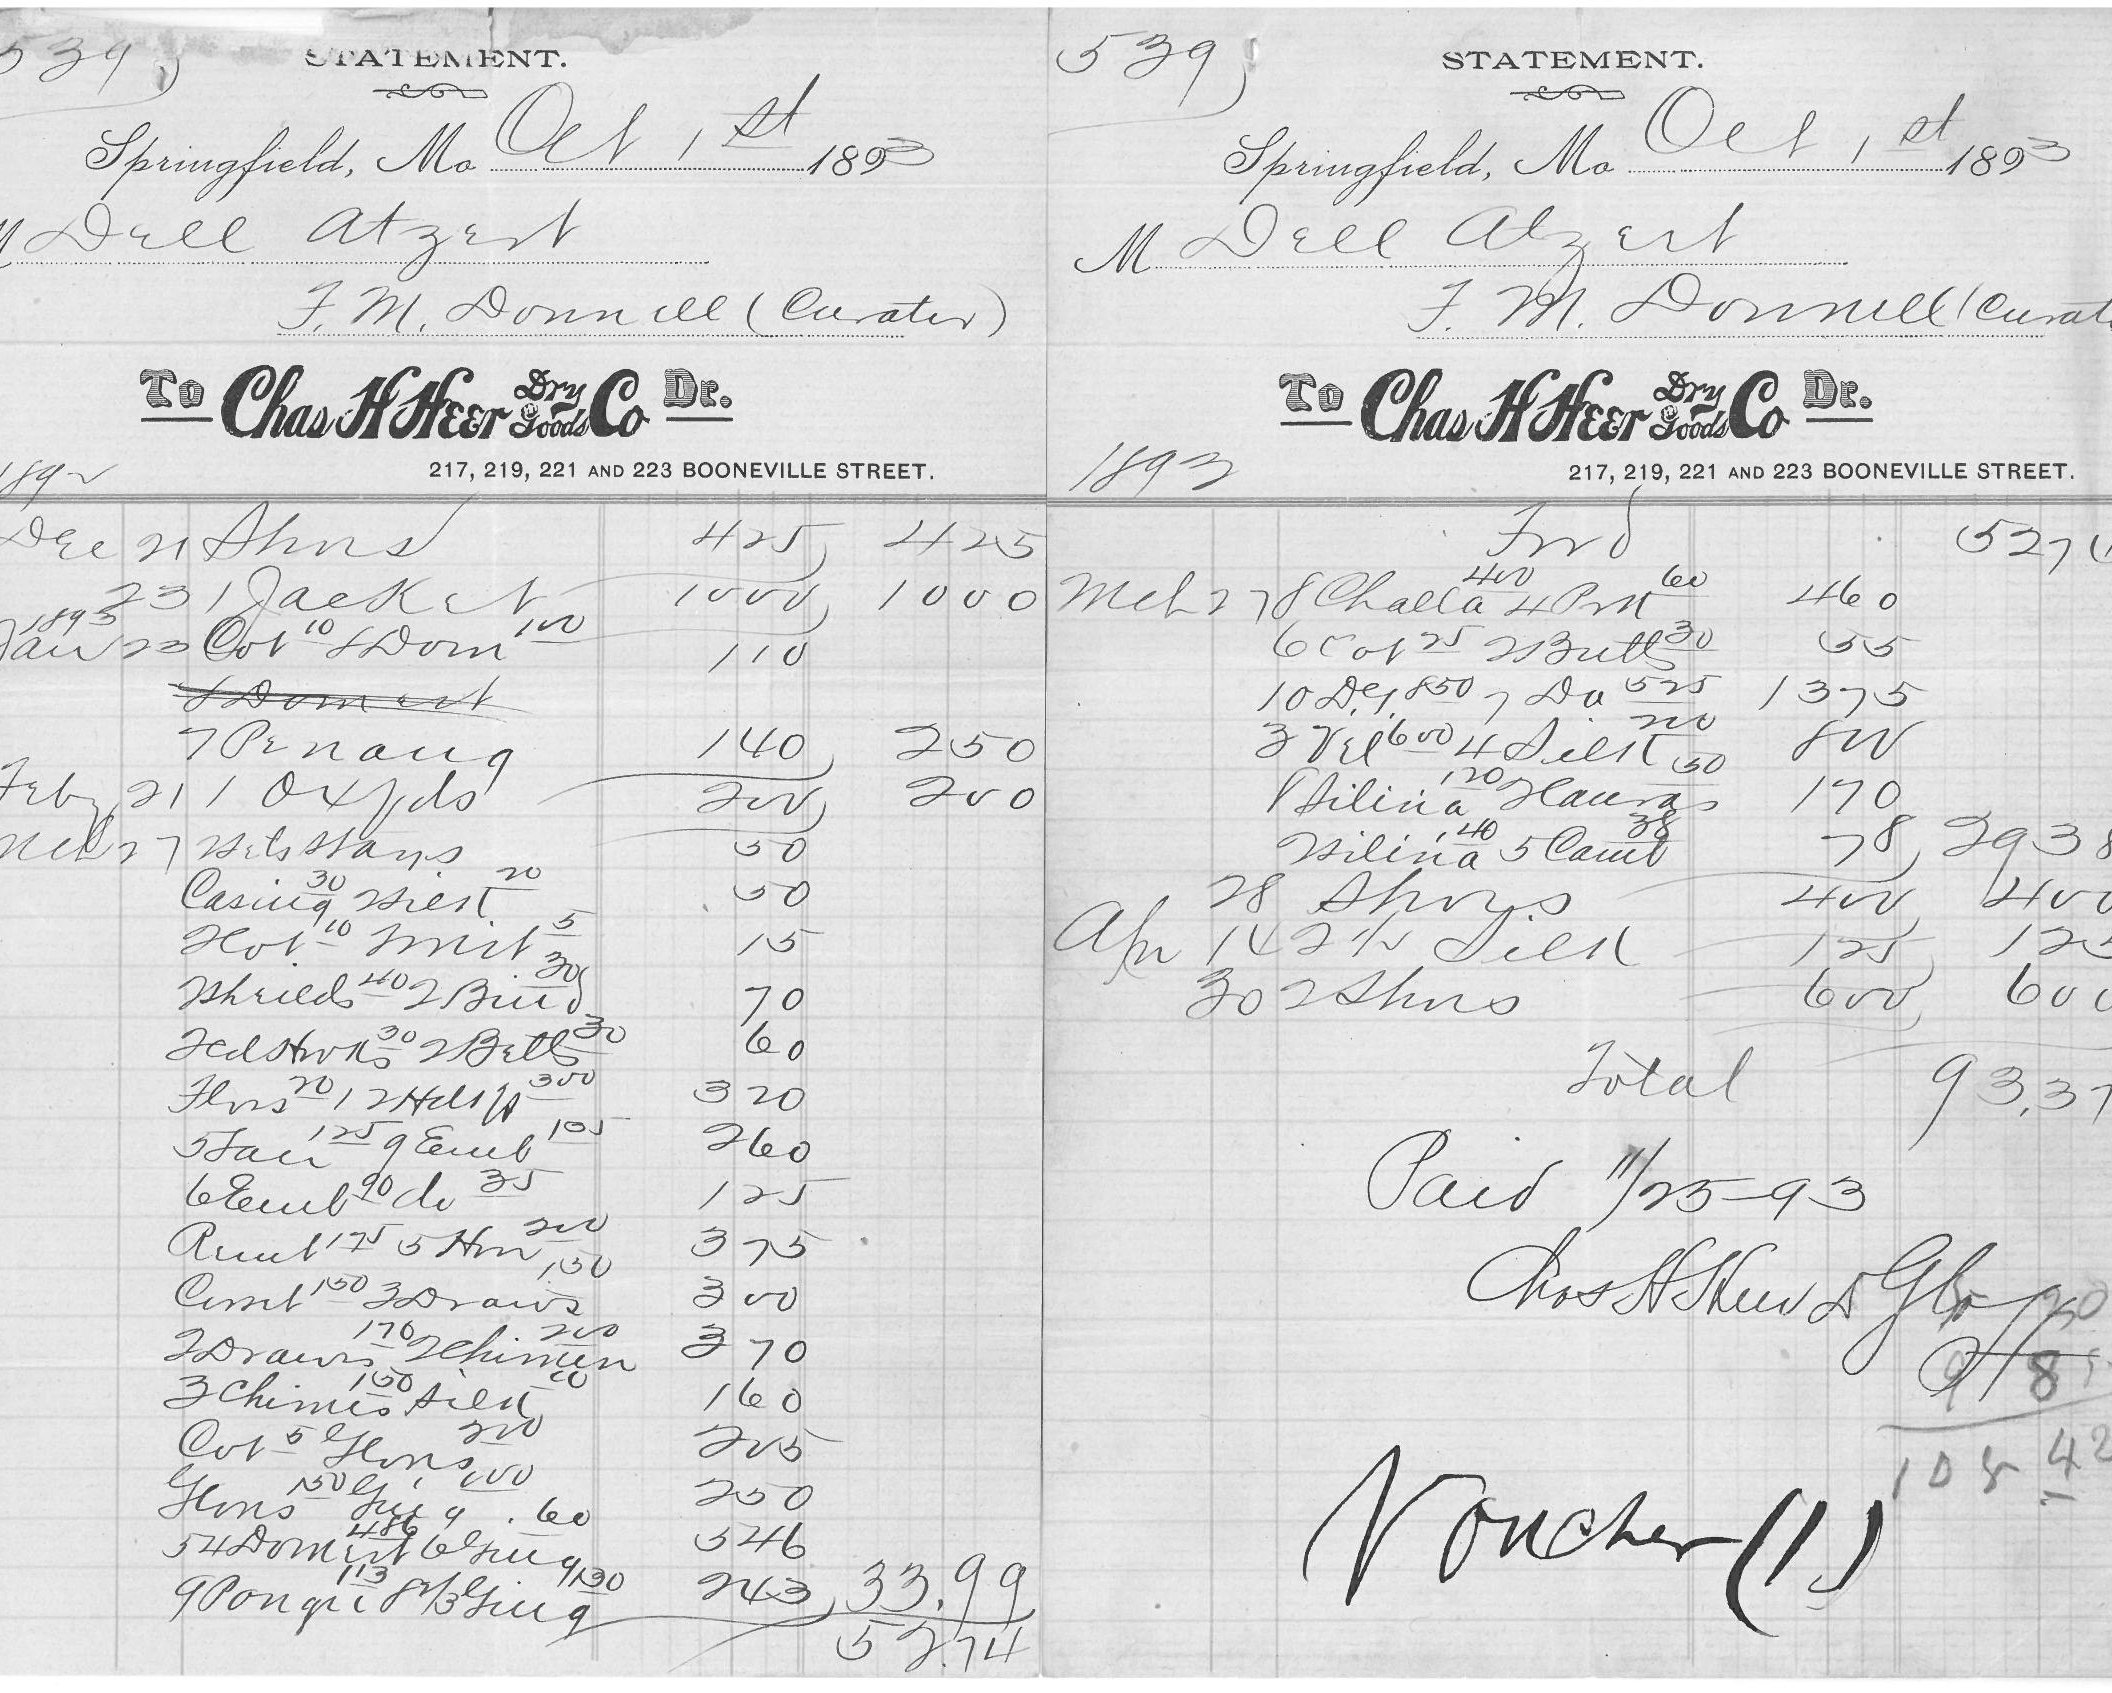 539
STATEMENT.
Springfield, Mo Oct 1st 1893
M Dell Atzert
F. M. Donnell (Curator)
To Chas H Heer Dry Goods Co Dr.
217, 219, 221 AND 223 BOONEVILLE STREET.
1892
Dec 21 Shoes 425 425
23 1 Jacket 1000 1000
1893
Jan 23 Cot 10 8 Dom 100 110
8 Domest
7 Penang 140 250
Feby 21 1 Oxfds 200 200
Mch 27 2 Sets Stays 50
Casing 30 Silk 20 50
2 Cot 10 Twist 5 15
Shields 40 2 Bind 30 70
30 2 Belts 30 60
Flos 20 12 Hdkfs 300 320
5 Lawn 125 9 Emb 135 260
6 Emb 90 do 35 125
Remt 175 5 Hose 200 375
Corset 150 3 Draws 150 300
2 Drawrs 170 2 Chimes 200 370
3 Chimes 150 Silk 10 160
Cot 5 Glovs 200 205
Glovs 150 Ging 100 250
54 Domest 486 6 Ging 60 546
9 Pongee 113 8 2/3 Ging 130 243 33.99
52.74
539
STATEMENT.
Springfield, Mo Oct 1st 1893
M Dell Atzert
F. M. Donnell (Curat
To Chas H Heer Dry Goods Co Dr.
217, 219, 221 AND 223 BOONEVILLE STREET.
1893
Fwd 527
Mch 27 8 Challa 400 4 Prt 60 460
6 Cot 25 2 Butts 30 55
10 D.G. 850 7 Do 525 1375
3 Vel 600 4 Silk 200 800
8 Silicia 120 2 Canvas 50 170
2 Silicia 40 5 Camb 38 78 2938
28 Shoes 400 400
Apr 14 2 1/2 Silk 125 125
30 2 Shoes 600 600
Total 93.37
Paid 11/25-93
Chas H Heer D G Co
10842
Voucher (1)